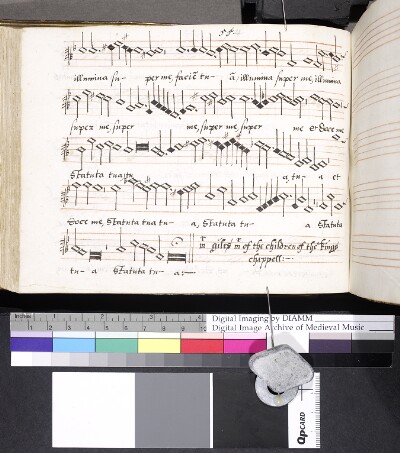 illumina su- per me, facie tu- a, illumina super me, illumina
super me, super me, super me, super me et doce me
Statuta tua, tu- a, tu- a et
doce me, Statuta tua tu- a, Statuta tu- a Statuta
tu- a Statuta tu- a:—
mr giles mr of the children of the kings
chappell:—
Inches 1 2 3 4
Digital Imaging by DIAMM
Digital Image Archive of Medieval Music
QPCARD